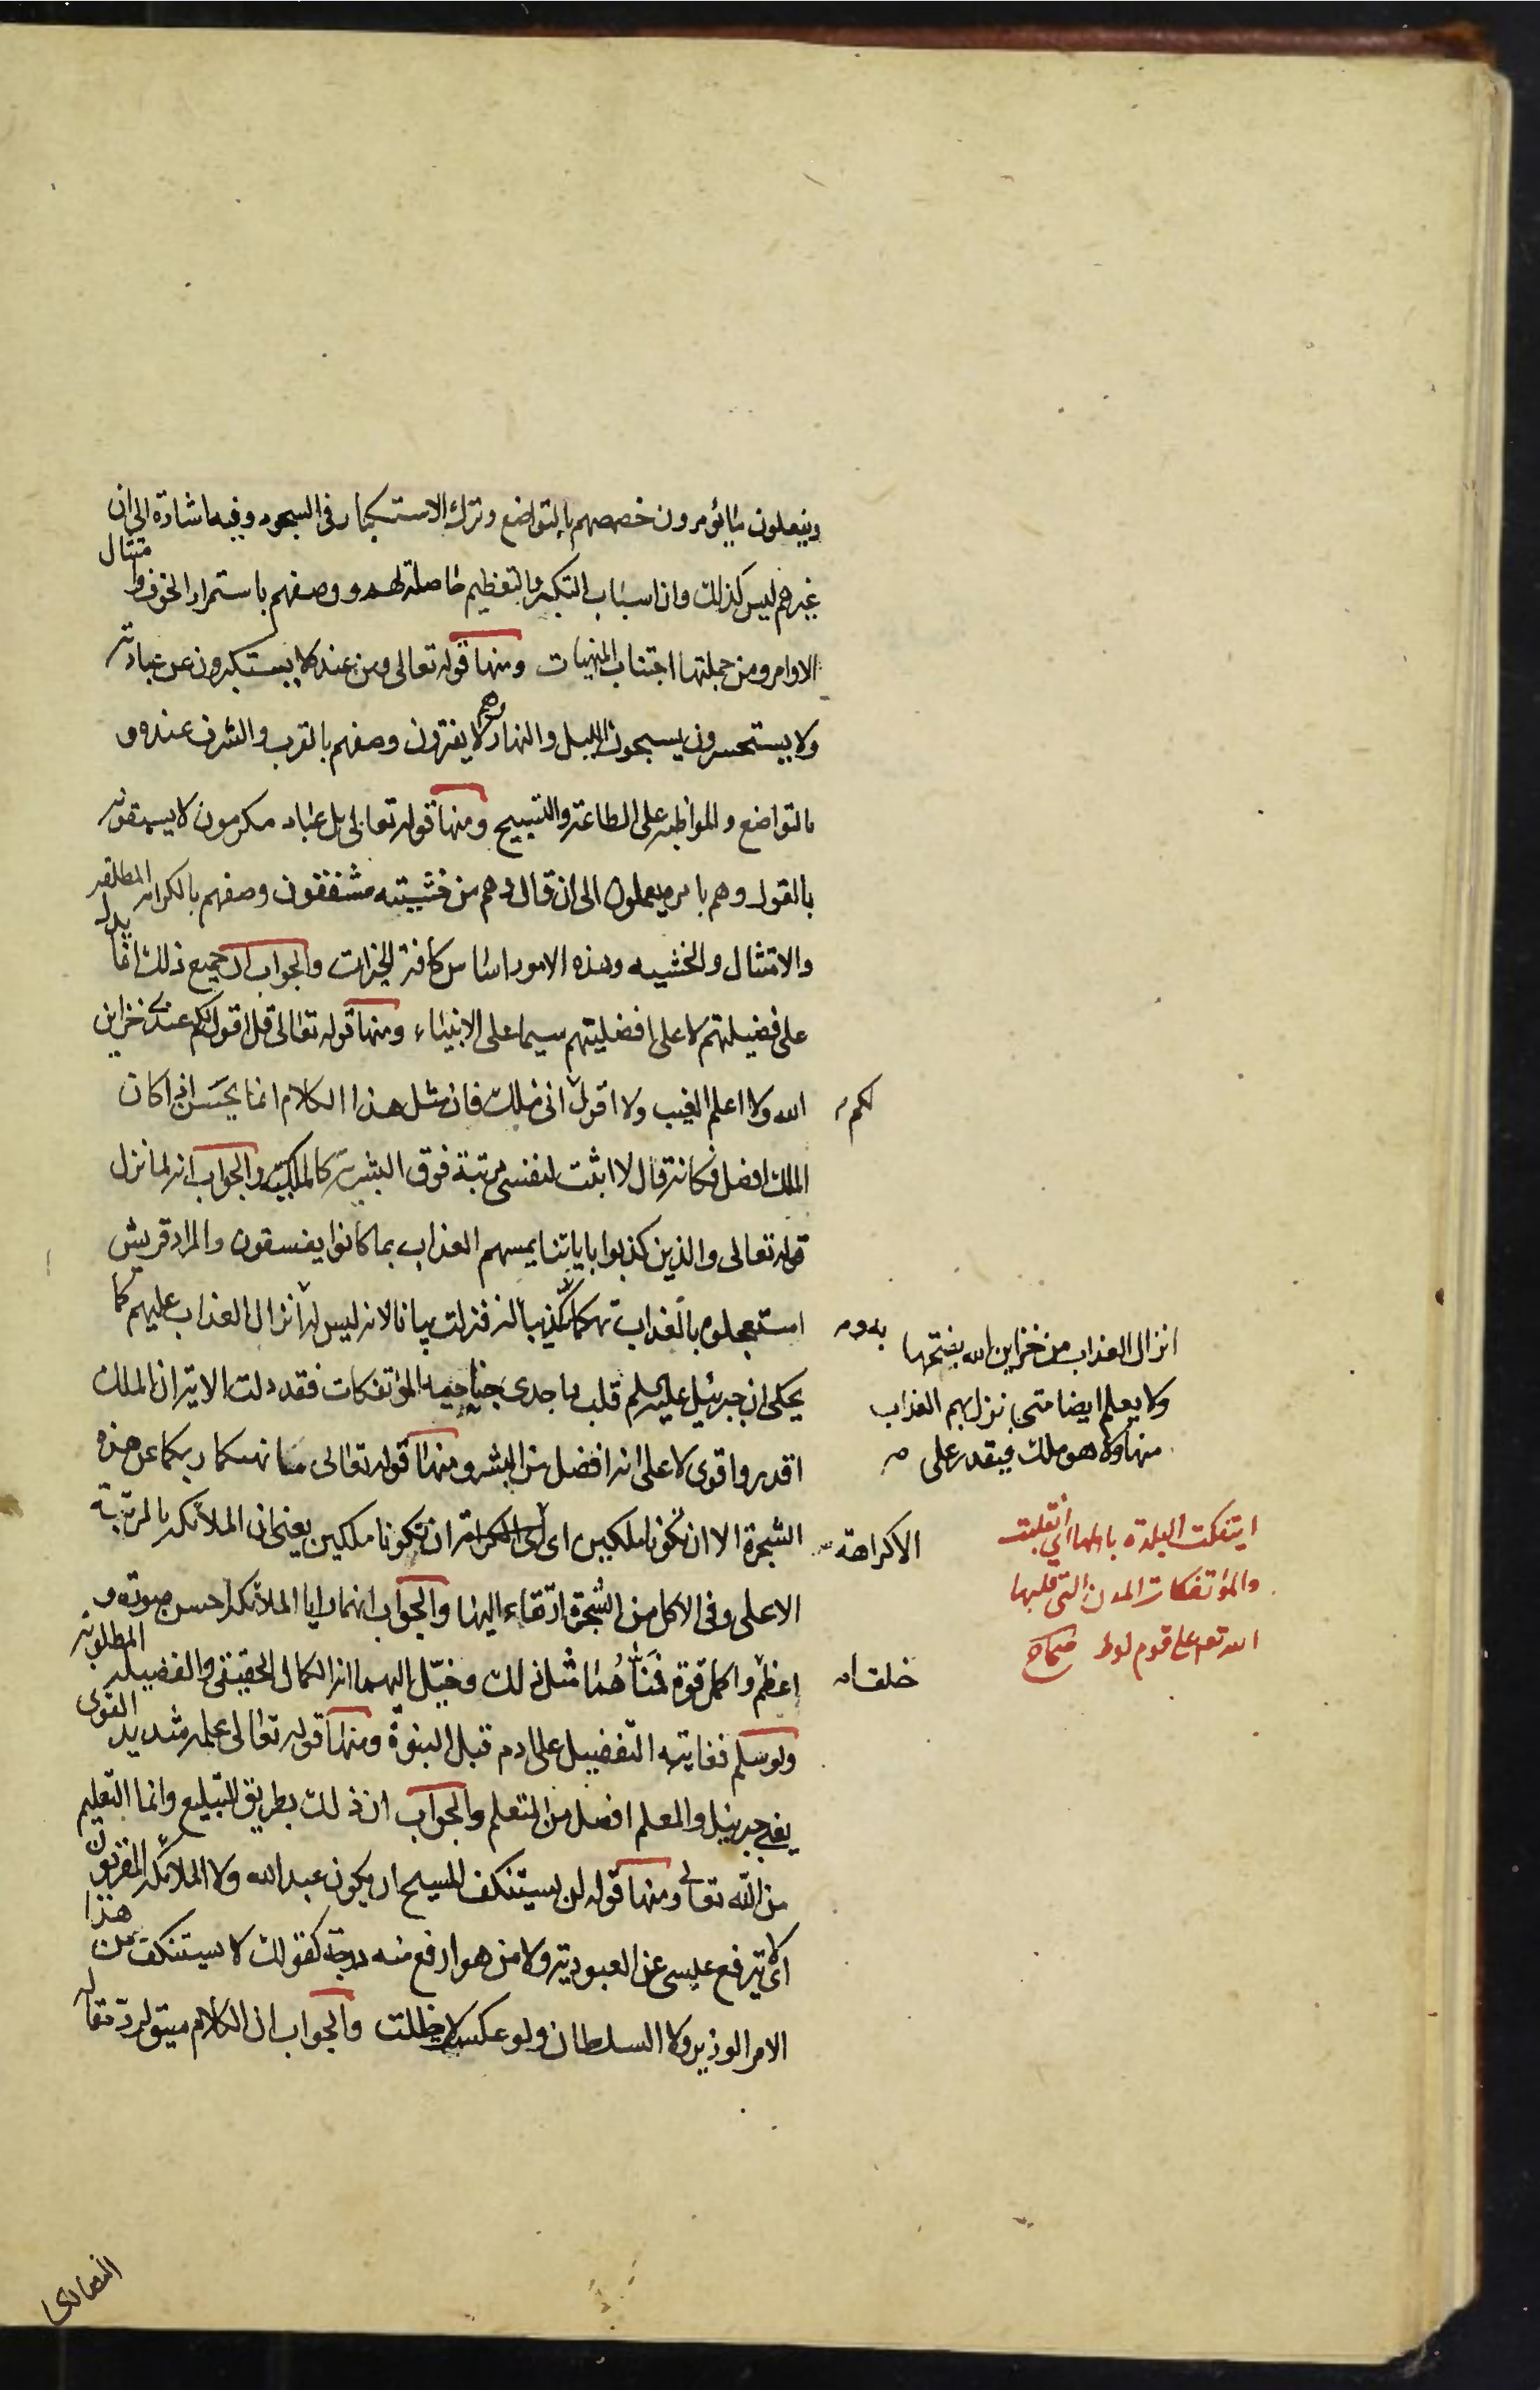 ويفعلون ما يؤمرون خصصهم بالتواضع وترك الاستكبار في السجود وفيه اشارة الى ان
غيرهم ليس كذلك وان اسباب التكبر والتعظيم حاصلة لهم ووصفهم باستمرار الخوف وامتثال
الاوامر ومن جملتها اجتناب المنهيات ومنها قوله تعالى ومن عنده لا يستكبرون عن عبادته
ولا يستحسرون يسبحون الليل والنهار وهم لا يفترون وصفهم بالقرب والشرف عنده و
بالتواضع والمواظبة على الطاعة والتسبيح ومنها قوله تعالى بل عباد مكرمون لا يسبقونه
بالقول وهم بامره يعملون الى ان قال وهم من خشيته مشفقون وصفهم بالكرامة المطلقة
والامتثال والخشيه وهذه الامور اساس كافة الخيرات والجواب ان جميع ذلك انما يدل
على فضيلتهم لا على افضليتهم سيما على الانبياء ومنها قوله تعالى قل لا اقول لكم عندي خزاين
الله ولا اعلم الغيب ولا اقول اني ملك فان مثل هذا الكلام انما يحسن اذا كان
لكم
الملك افضل فكانه قال لا اثبت لنفسي مرتبة فوق البشرية كالملكية والجواب انه لما نزل
قوله تعالى والذين كذبوا باياتنا يمسهم العذاب بما كانوا يفسقون والمراد قريش
استعجلوه بالعذاب تهكما وتكذيبا له فنزلت بيانا لانه ليس له انزال العذاب عليهم كما
يحكى ان جبرئيل عليه السلم قلب باحدى جناحيه المؤتفكات فقد دلت الاية ان الملك
اقدر واقوى لا على انه افضل من البشر ومنها قوله تعالى ما نهاكما ربكما عن هذه
الشجرة الا ان تكونا ملكين اي الا كراهة ان تكونا ملكين يعني ان الملائكة بالمرتبة
الاعلى وفي الاكل من الشجرة ارتقاء اليها والجواب انهما رايا الملائكة احسن صورة و
اعظم واكمل قوة فمناهما مثل ذلك وخيل اليهما انه الكمال الحقيقي والفضيلة المطلوبة
ولو سلم فغايته التفضيل على ادم قبل النبوة ومنها قوله تعالى علمه شديد القوى
يعني جبرئيل والمعلم افضل من المتعلم والجواب ان ذلك بطريق التبليغ وانما التعليم
من الله تعالى ومنها قوله لن يستنكف المسيح ان يكون عبدا لله ولا الملائكة المقربون
اي لا يترفع عيسى عن العبودية ولا من هو ارفع منه درجة كقولك لا يستنكف من هذا
الامر الوزير ولا السلطان ولو عكست لاحظلت والجواب ان الكلام سيق لرد مقالة
النصارى
انزال العذاب من خزاين الله يفتحها
ولا يعلم ايضا متى ينزل بهم العذاب
منها ولا هو ملك فيقدر على
به
الا كراهة
خلقا
ايتفكت البلدة باهلها اي انقلبت
والمؤتفكات المدن التي قلبها
الله تعالى على قوم لوط صحاح